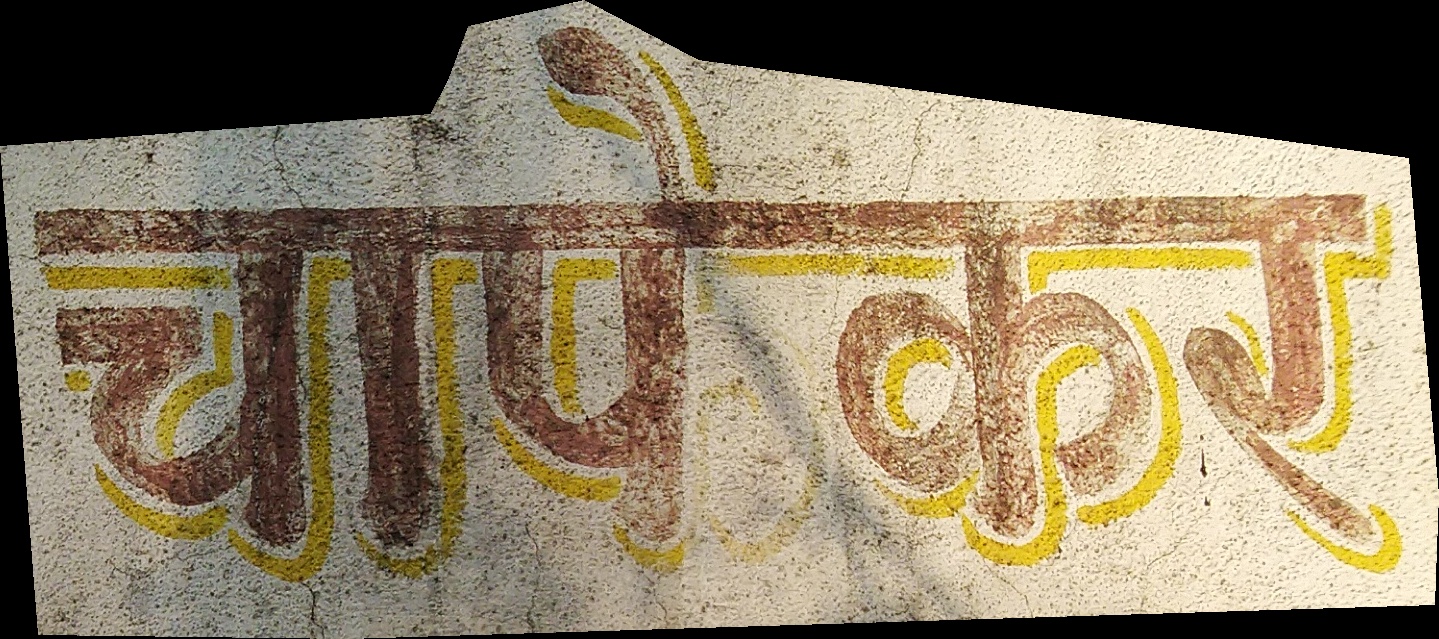 चापेकर